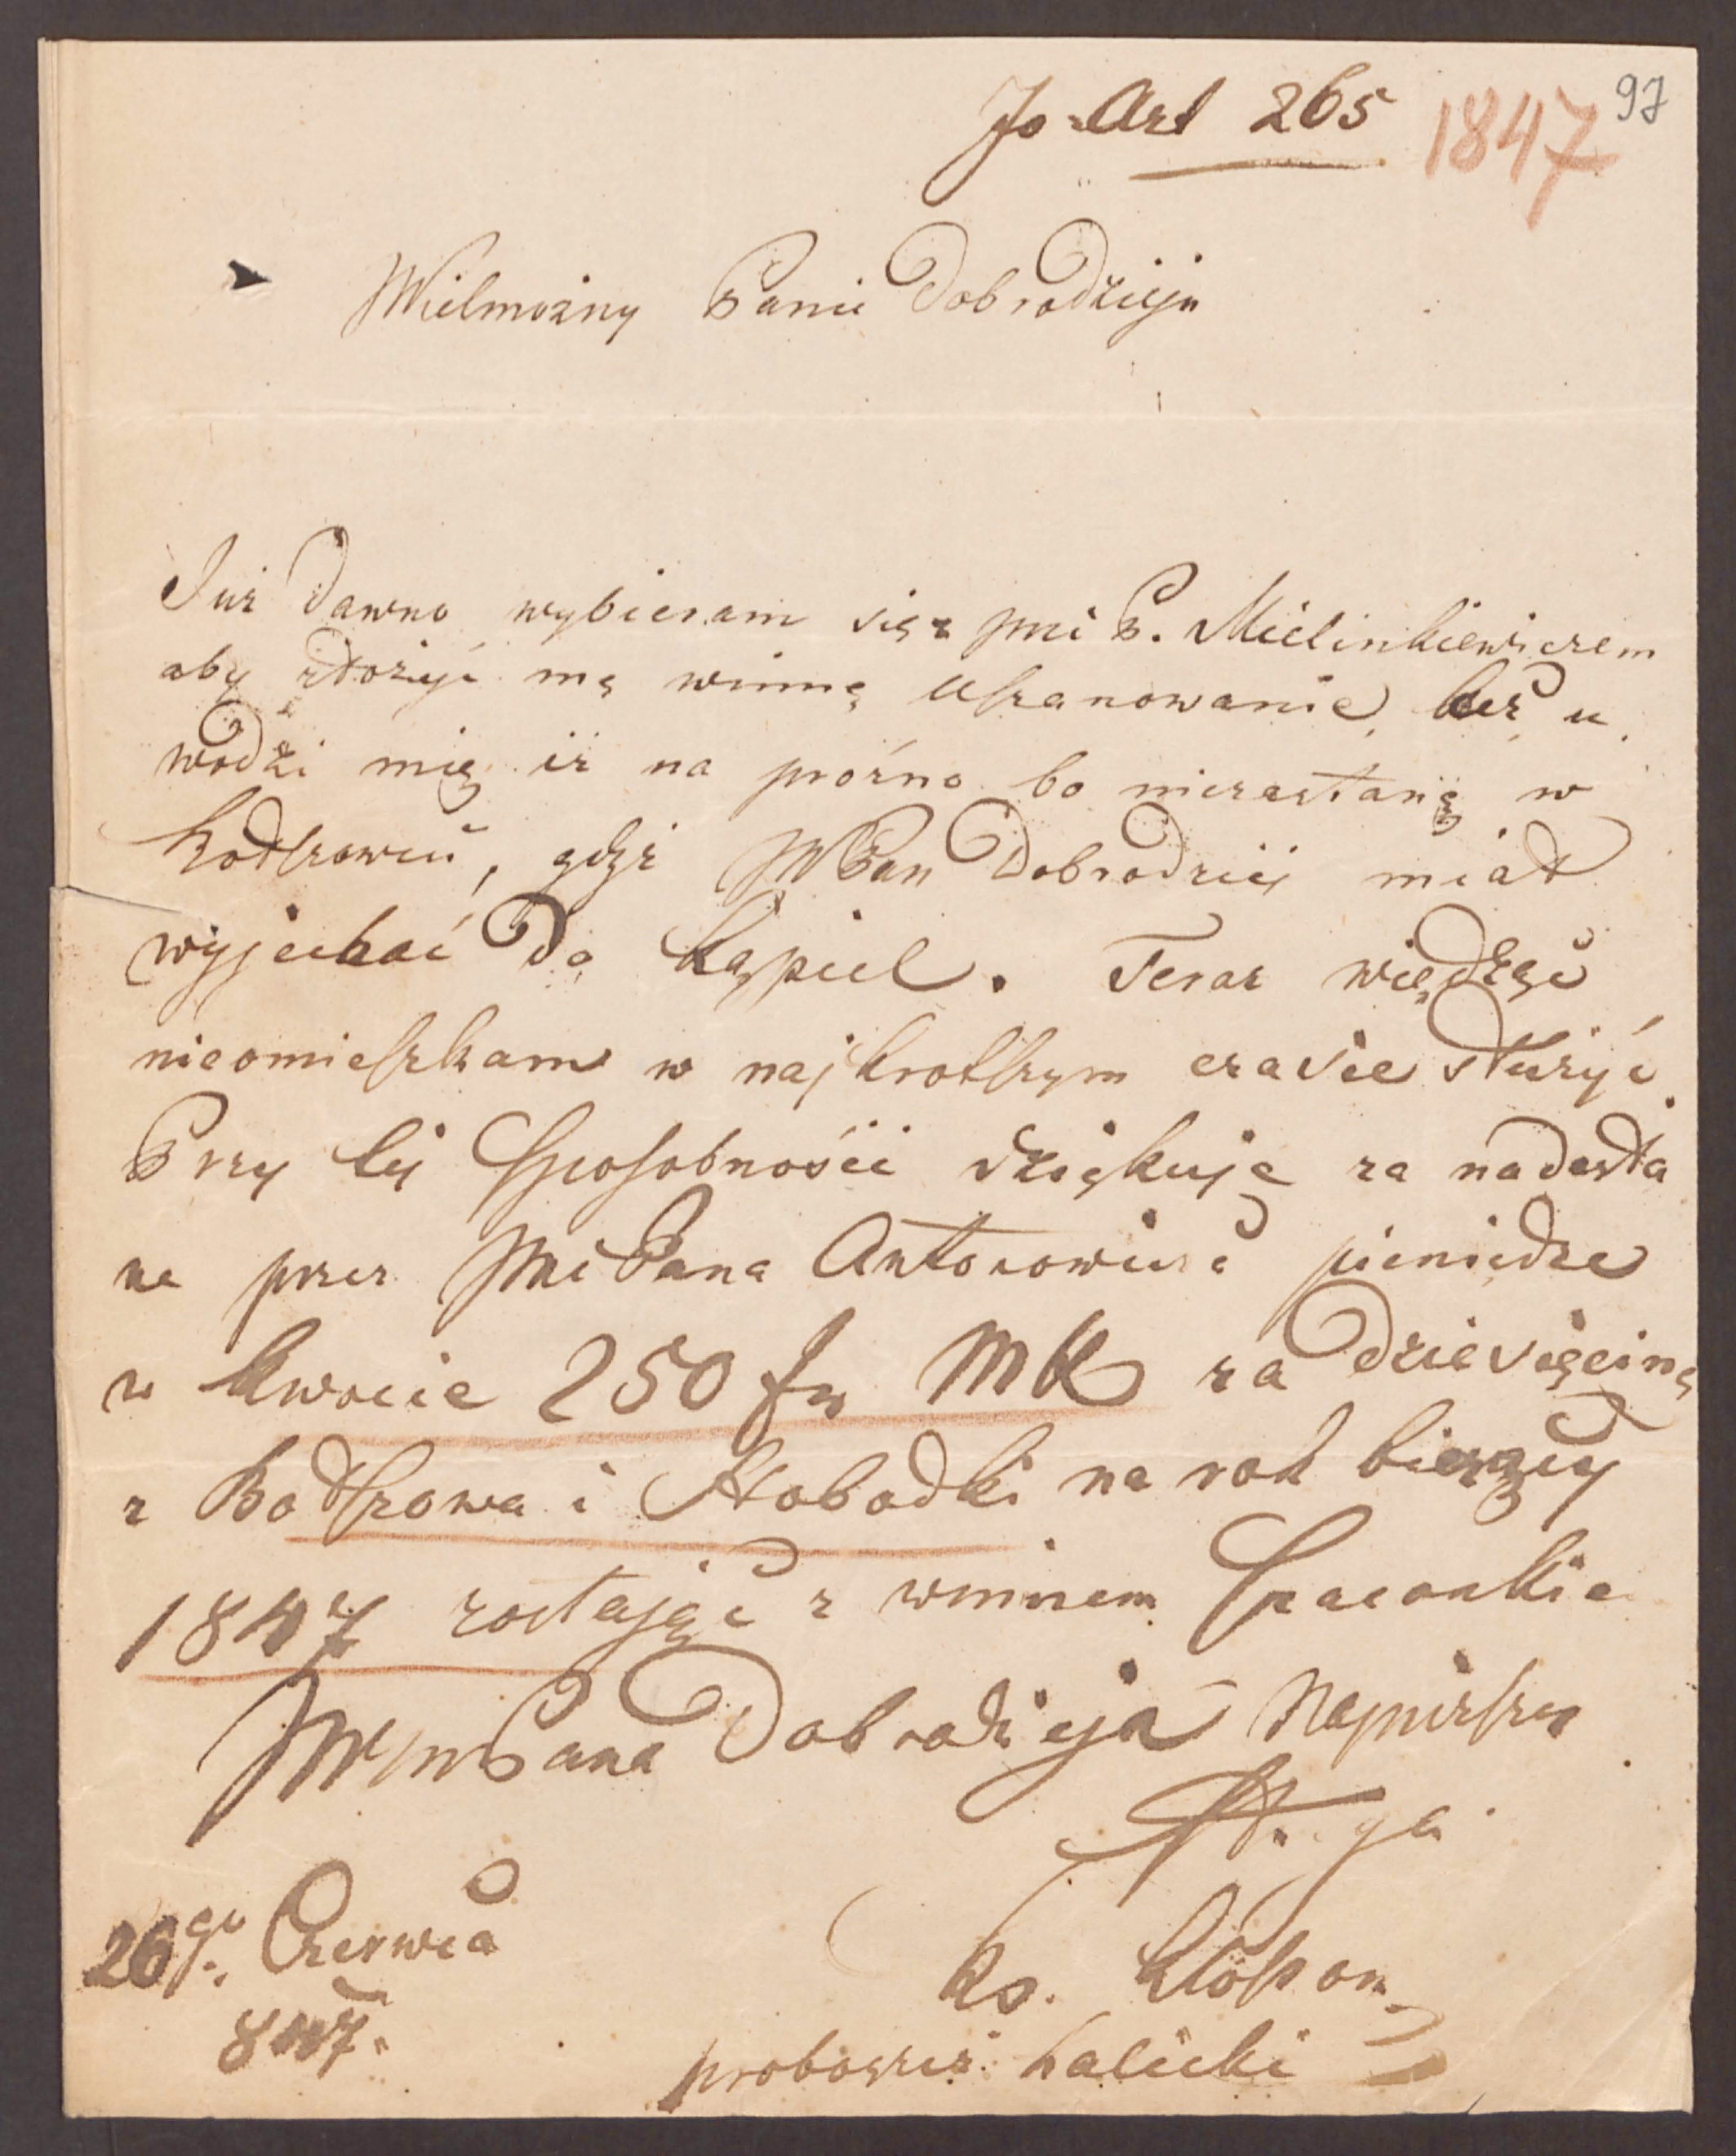 Jo Art 265 1847 97
Wielmożny Panie Dobrodzieju
Już dawno wybieram się z Jmci P. Mielinkiewiczem
aby złożyć mą winną uszanowanie, lecz u
wodzi mię iż na próżno bo niezastanę w
gdyż WPan Dobrodziej miał
wyjechać do Kąpiel. Teraz więdząc
nieomieszkam w najkrotszym czasie służyć.
Przy tej Sposobności dziękuję za nadesła
ne przez Jmci Pana Antonowicza pieniędze
w kwocie 250 fr MK za dziesięcinę
z Bodszowa i Słobodki na rok bierzący
1847 zostając z winnem Szacunkie
Pana Dobrodzieja Najniższy
Sługa
26go. Czerwca
847.
Ks.
proboszcz halicki